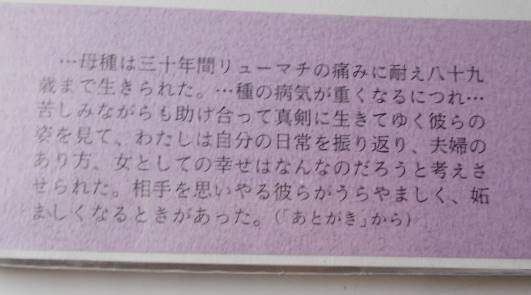 …母種は三十年間リューマチの痛みに耐え八十九
歳まで生きられた。…種の病気が重くなるにつれ…
苦しみながらも助け合って真剣に生きてゆく彼らの
姿を見て、わたしは自分の日常を振り返り、夫婦の
あり方、女としての幸せはなんなのだろうと考えさ
せられた。相手を思いやる彼らがうらやましく、妬
ましくなるときがあった。(「あとがき」から)